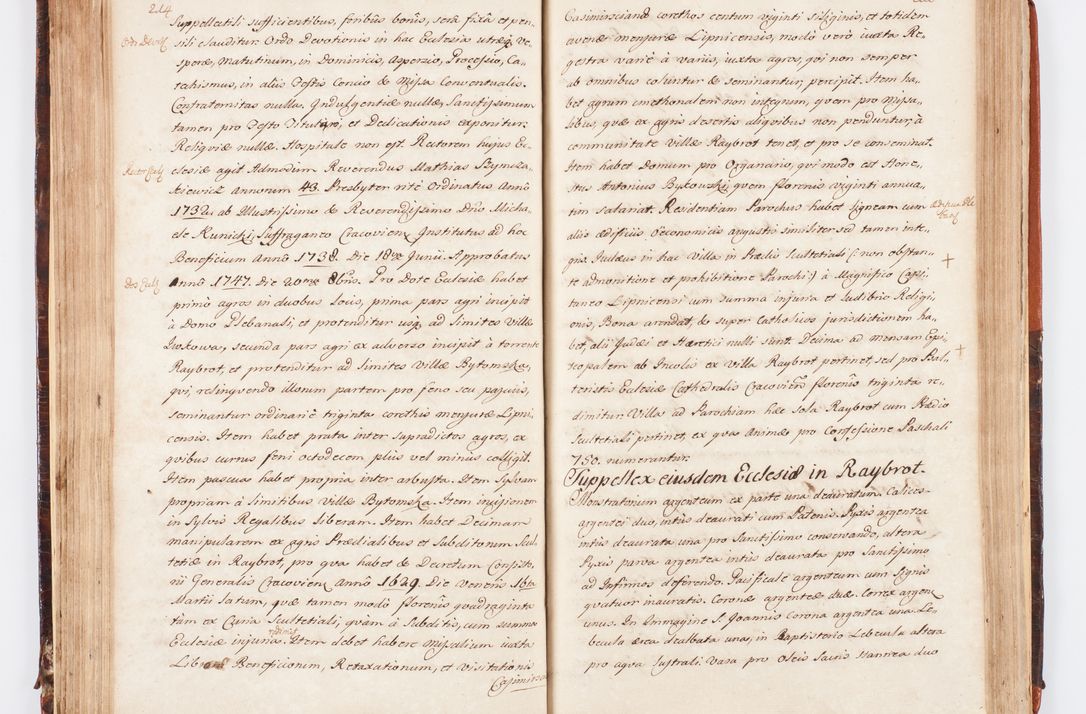 214
Suppellectili sufficientibus, foribus bonis, sera fixa et pen„
sili clauditur. Ordo Devotionis in hac Ecclesia utræq3 Ve„
Ordo Devot
speræ, Matutinum, in Dominicis, Aspersio, Processio, Ca„
techismus, in aliis Festis Concio & Missa Conventualis.
Confraternitas nulla. Indulgentiæ nullæ, Sanctissimum
tamen pro Festo Titulari, et Dedicationis exponitur.
Reliquiæ nullæ. Hospitale non est. Rectorem hujus Ec„
Rector Eccl
clesiæ agit Admodum Reverendus Mathias
siewicz Annorum 43. Presbyter rite Ordinatus Anno
1732do ab Illustrissimo & Reverendissimo Dno Micha„
ele Kunicki Suffraganeo Cracovien Institutus ad hoc
Beneficium Anno 1738. Die 18va Junii. Approbatus
Dos Eccl
Anno 1747. Die 20ma 8bris. Pro Dote Ecclesiæ habet
primo agros in duobus locis, prima pars agri incipit
à Domo Plebanali, et protenditur usq3 ad limites Villæ
Iwkowa, secunda pars agri ex adverso incipit à torrente
Raybrot, et protenditur ad limites Villæ Bytomska,
qui relinquendo illorum partem pro feno seu pascuis,
seminantur ordinariè triginta corethis mensuræ Lipni„
censis. Item habet prata inter supradictos agros, ex
quibus currus feni octodecem plus vel minus colligit.
Item pascua habet propria inter arbusta. Item Sylvam
propriam à limitibus Villæ Bytomska. Item incisionem
in Sylvis Regalibus liberam. Item habet Decimam
manipularem ex agris Prædialibus et Subditorum Scul„
tetiæ in Raybrot, pro qua habet & Decretum Consisto„
rii Generalis Cracovien Anno 1629. Die Veneris 16ta
Martii latum, quæ tamen modo florenis quadraginta
tam ex Curia Scultetiali, quàm à Subditis, cum summa
Ecclesiæ injuria. Item debet habere Missalium iuxta
Libros Beneficiorum, Retaxationum, et Visitationis
Casimirscia
Casimirsciana corethos centum viginti siliginis, et totidem
avenæ mensuræ Lipnicensis, modo verò iuxta Re„
gestra variè à variis, iuxta agros, qui non semper
ab omnibus coluntur & seminantur, percipit. Item ha„
bet agrum cmethonalem non integrum, quem pro Missa„
libus, quæ ex agris desertis aliquibus non penduntur, à
communitate Villæ Raybrot tenet, et pro se conseminat.
Item habet Domum pro Organario, qui modo est Hone„
stus Antonius Bytowski, quem florenis viginti annua„
tim salariat. Residentiam Parochus habet ligneam cum
aliis ædificiis œconomicis angustis similiter sed tamen inte„
gris. Judæus in hac Villa in Prædio Scultetiali (: non obstan„
te admonitione et prohibitione Parochi :) à Magnifico Capi„
+
taneo Lipnicensi cum summa injuria et ludibrio Religi„
onis, Bona arendat, & super Catholicos jurisdictionem ha„
bet, alii Judæi et Hæretici nulli sunt. Decima ad mensam Epi„
+
scopalem ab Incolis ex Villa Raybrot pertinet, sed pro Psal„
teristis Ecclesiæ Cathedralis Cracovien florenis triginta re„
dimitur. Villa ad Parochiam hæc sola Raybrot cum Prædio
Scultetiali pertinet, ex qua Animæ pro Confessione Paschali
750. numerantur.
Suppellex eiusdem Ecclesiæ in Raybrot.
Monstratorium argenteum ex parte una deauratum. Calices
argentei duo, intus deaurati cum Patenis. Pyxis argentea
intus deaurata una pro Sanctissimo conservando, altera
Pyxis parva argentea intus deaurata pro Sanctissimo
ad Infirmos deferendo. Pacificale argenteum cum Signis
quatuor inauratis. Coronæ argenteæ duæ. Correx argen„
teus unus. In Immagine S. Joannis Corona argentea una. Le„
becula ærea dealbata una, in Baptisterio Lebecula altera
pro aqua lustrali. Vasa pro Oleis Sacris stannea duo